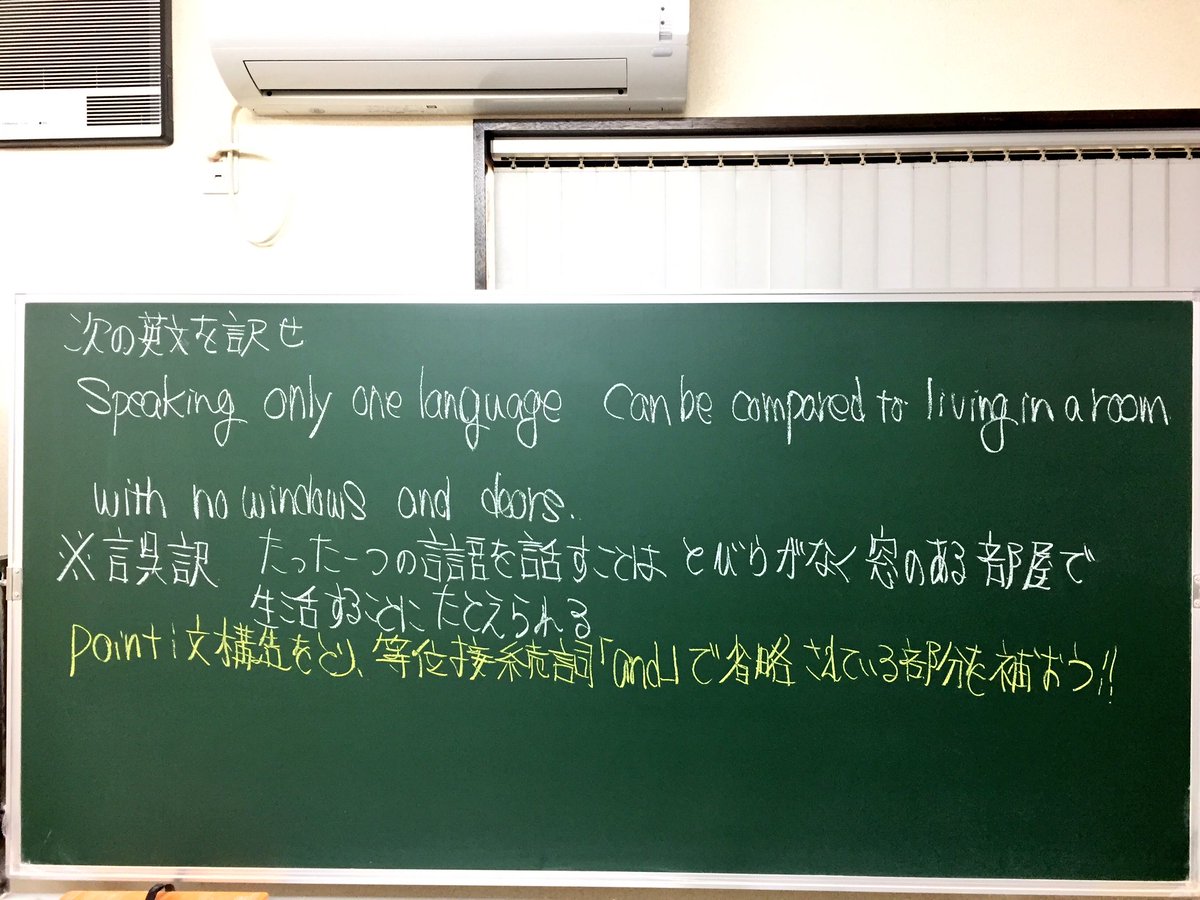 次の英文を訳せ
Speaking only one language can be compared to living in a room
with no windows and doors.
※誤訳 たった一つの言語を話すことは とびらがなく窓のある部屋で
生活することにたとえられる
point:文構造をとり、等位接続詞「and」で省略されている部分を補おう!!